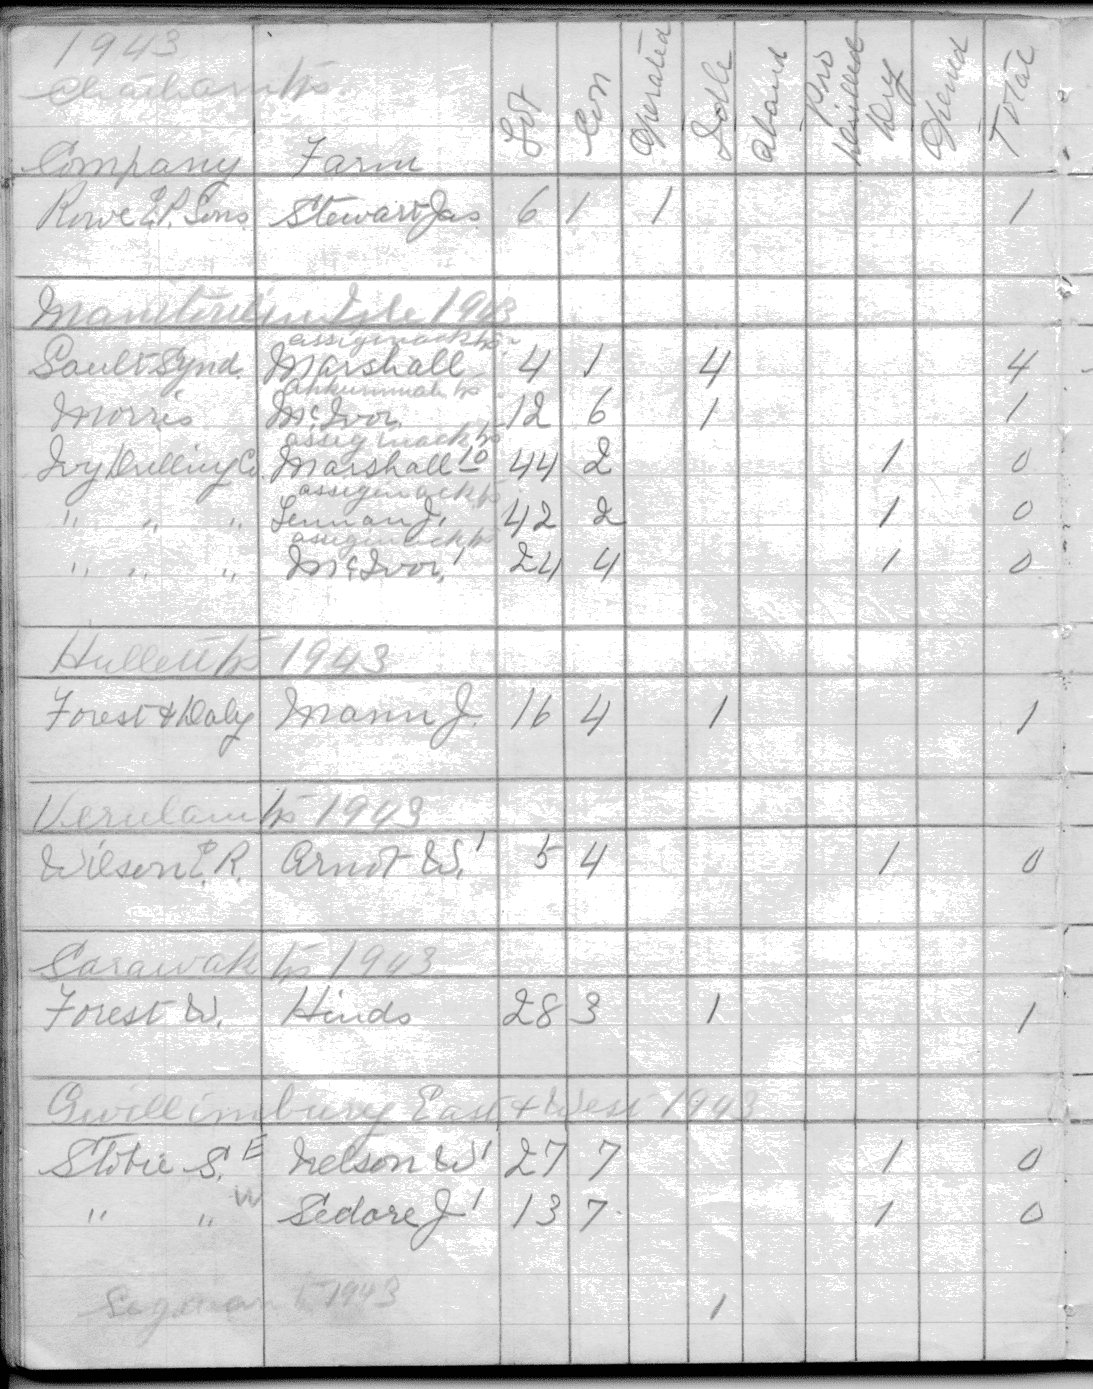 1943
Chatham tp
Company Farm Lot Con Operated Idle Aband Pro Drilled Dry Opened Total
Rowe E.P. Sons Stewart Jas 6 1 1 1
Manitoulin Isle 1943
assiginack tp
Sault Synd. Marshall 4 1 4 4
tp
Morris McIvor 12 6 1 1
assiginack tp
Ivy Drilling Co Marshall 10 44 2 1 0
assiginack tp
" " " Lennan J. 42 2 1 0
assiginack tp
" " " McIvor 1 24 4 1 0
Hullett tp 1943
Forest & Daly Mann J. 16 4 1 1
Verulam tp 1943
Wilson E.R. Arnot W. 1 5 4 1 0
Sarawak tp 1943
Forest W. Hinds 28 3 1 1
Gwillimbury East & West 1943
Stobie S. E Nelson W 1 27 7 1 0
" " W Sedore J 1 13 7 1 0
1943 1